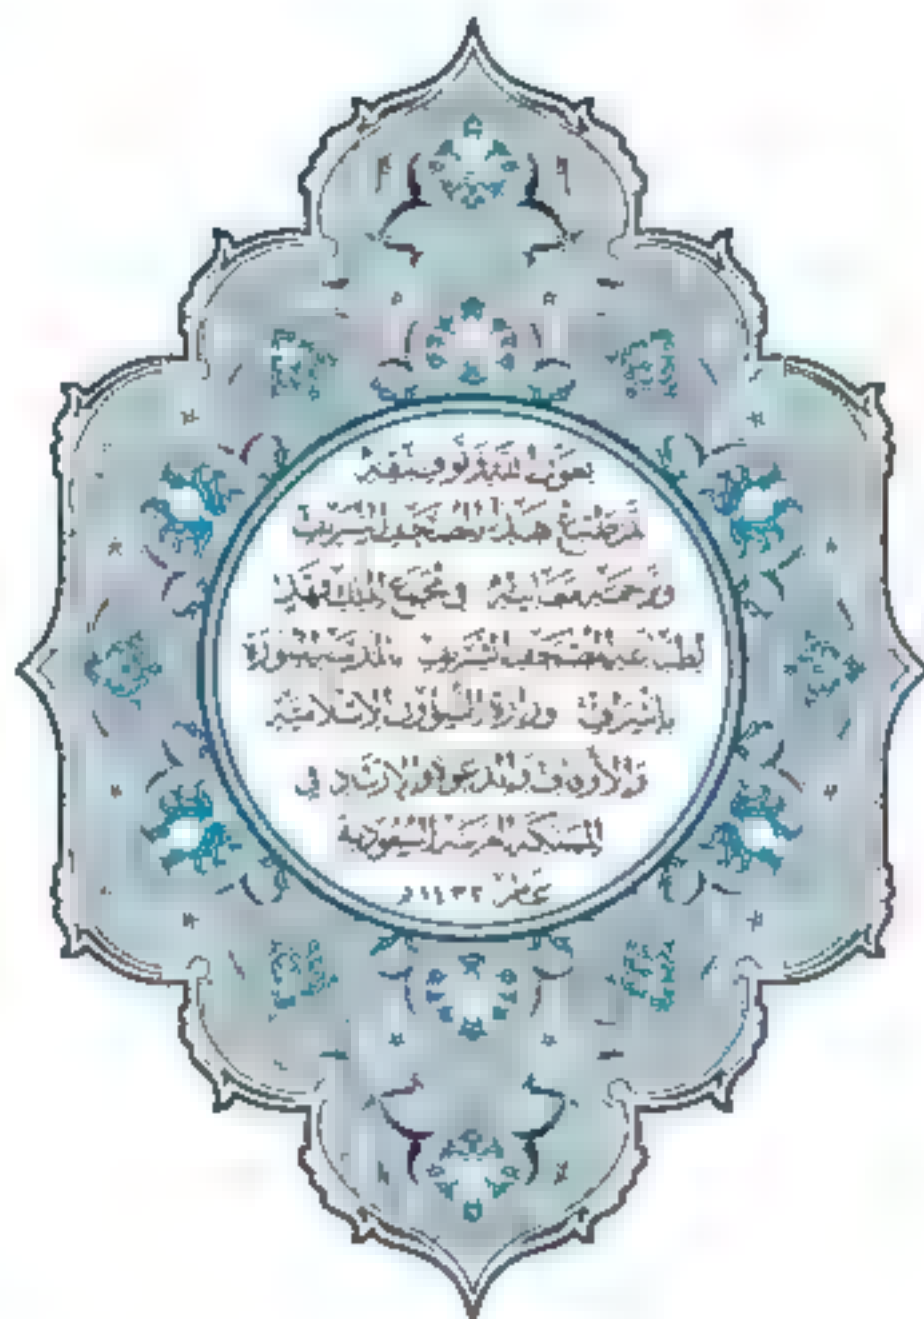 بعون الله وتوفيقه
تم طبع هذا المصحف الشريف
وترجمة معانيه في مجمع الملك فهد
لطباعة المصحف الشريف بالمدينة المنورة
بإشراف وزارة الشؤون الإسلامية
والأوقاف والدعوة والإرشاد في
المملكة العربية السعودية
عام